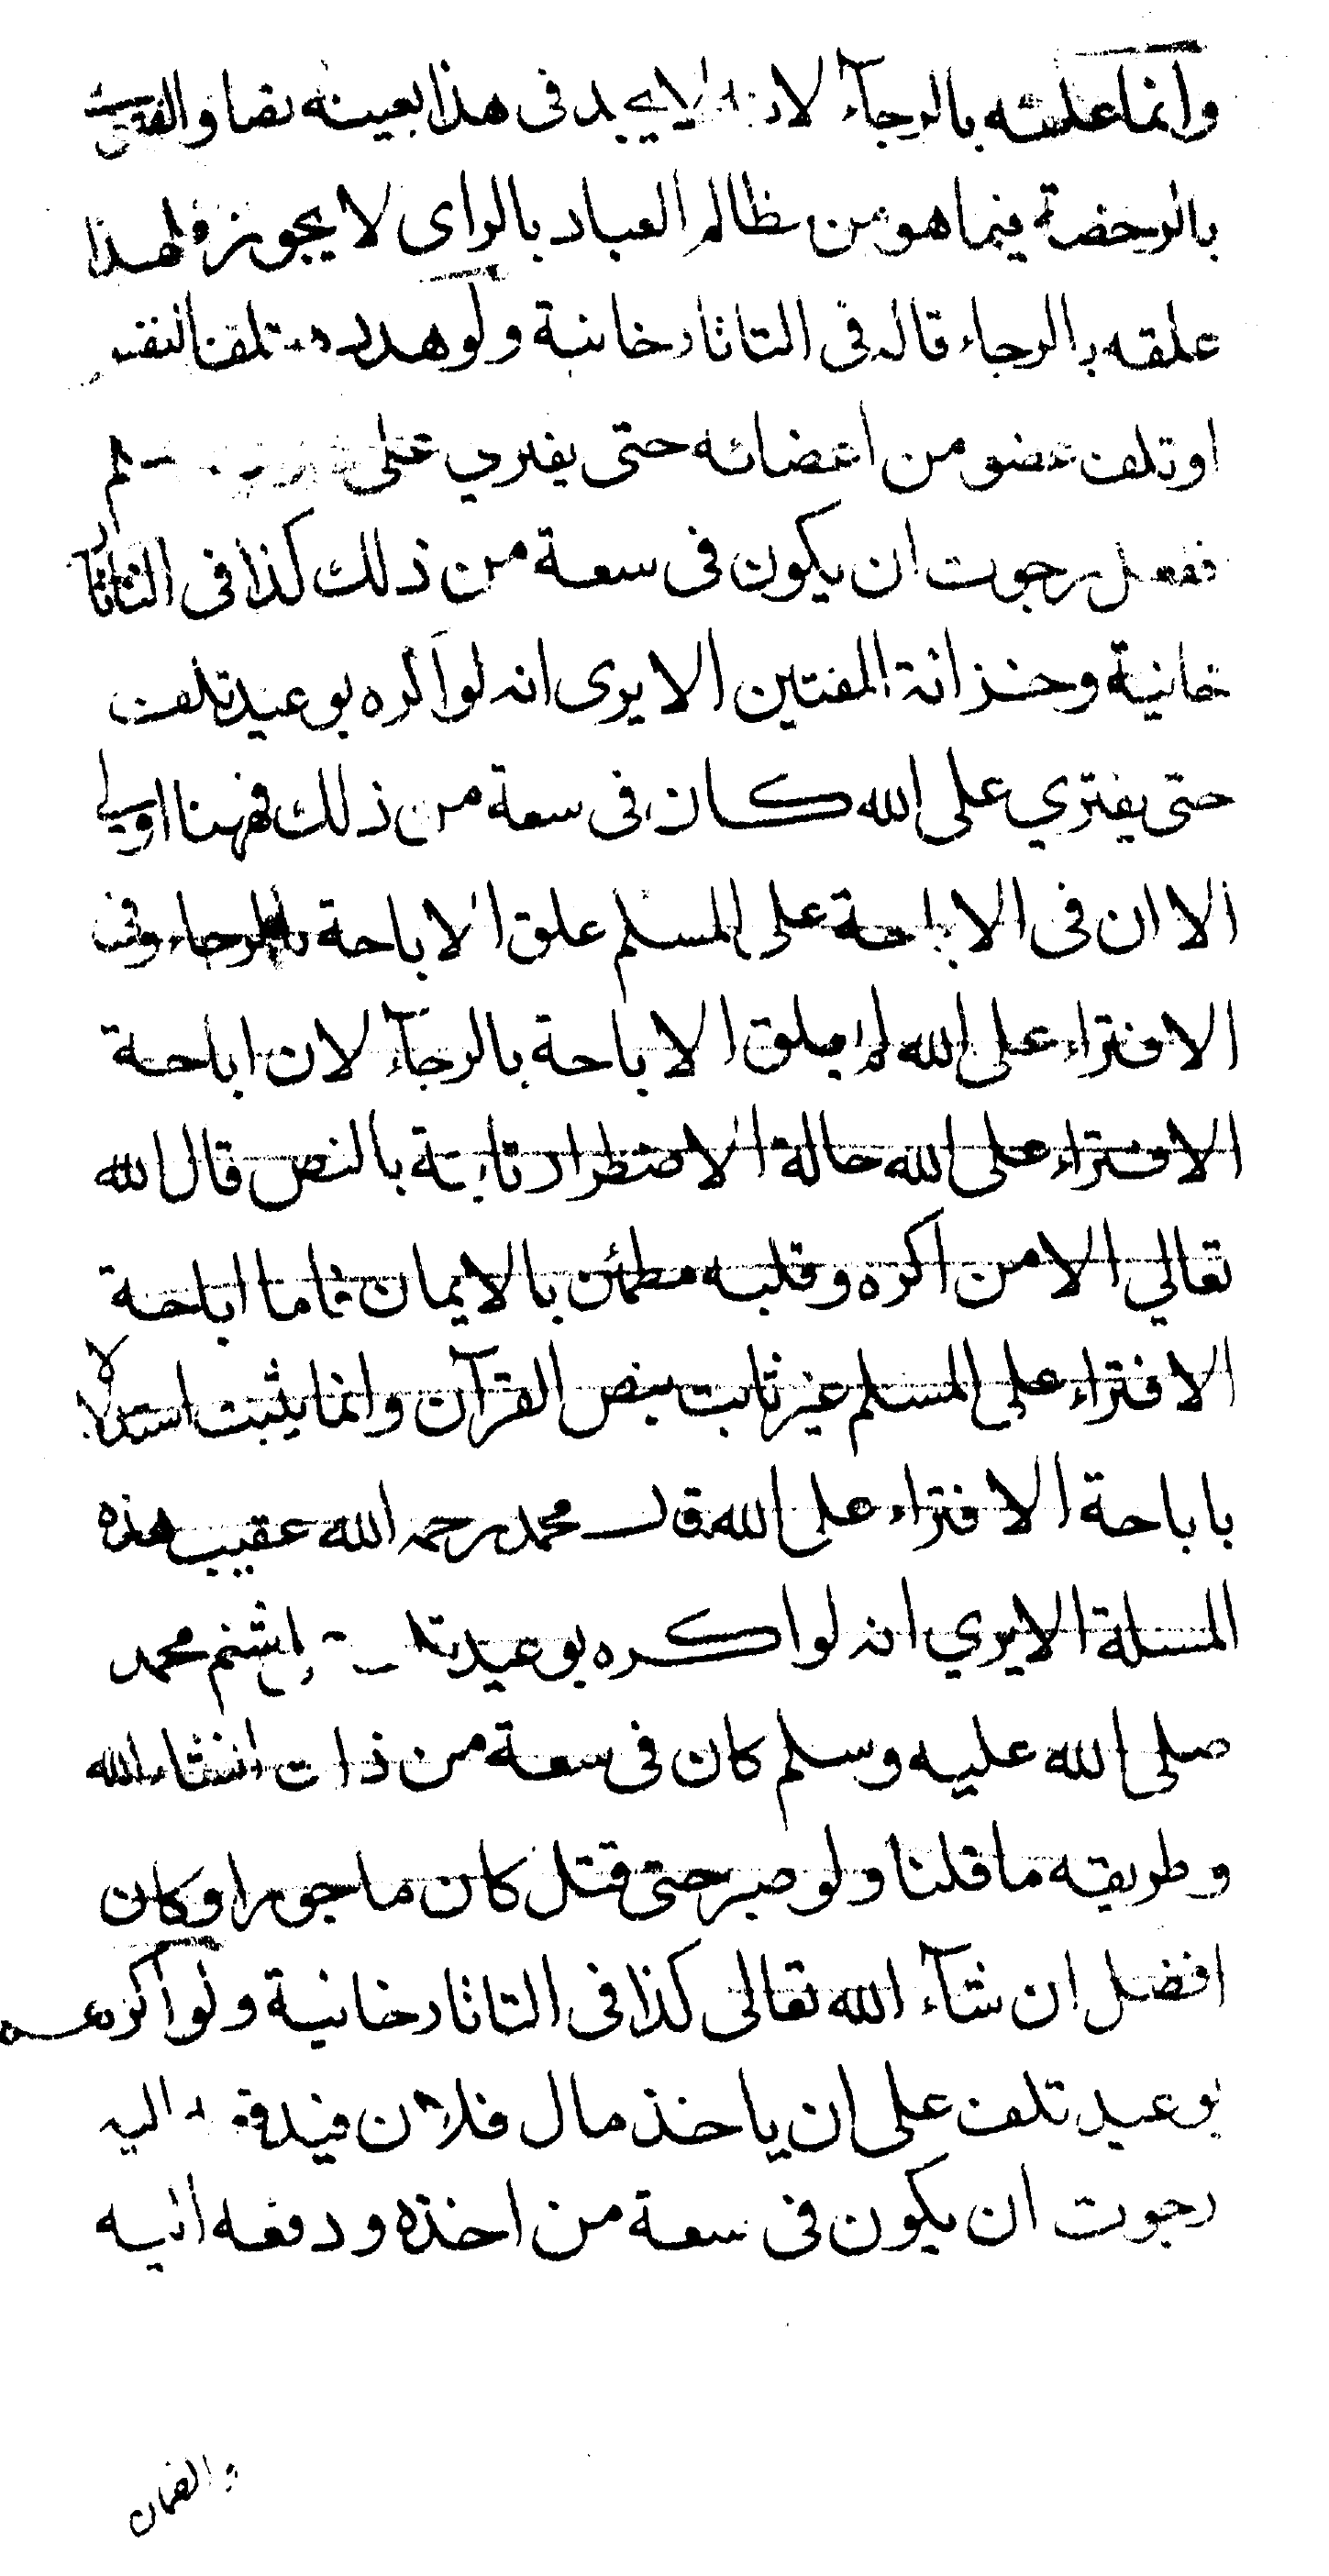 وانما علقه بالرجآء لانه لايجد فى هذا بعينه نصا والفتوى
بالرخصة فيما هو من مظالم العباد بالراى لا يجوز ولهذا
علقه بالرجاء قاله فى التاتارخانية ولو هدده بتلف النفس
او تلف عضو من اعضائه حتى يفتري على مسلم
ففعل رجوت ان يكون فى سعة من ذلك كذا فى التاتار
خانية وخزانة المفتين الا يرى انه لو اكره بوعيد تلف
حتى يفتري على الله كان فى سعة من ذلك فههنا اولى
الا ان فى الاباحة على المسلم علق الاباحة بالرجاء وفى
الافتراء على الله لم يعلق الاباحة بالرجآء لان اباحة
الافتراء على الله حالة الاضطرار ثابتة بالنص قال الله
تعالي الا من اكره وقلبه مطمئن بالايمان فاما اباحة
الافتراء على المسلم غير ثابت بنص القرآن وانما يثبت استدلالا
باباحة الافتراء على الله قال محمد رحمه الله عقيب هذه
المسئلة الا يري انه لو اكره بوعيد تلف بشتم محمد
صلى الله عليه وسلم كان فى سعة من ذلك انشاء الله
وطريقه ما قلنا ولو صبر حتى قتل كان ماجورا وكان
افضل ان شآء الله تعالى كذا فى التاتارخانية ولو اكرهه
بوعيد تلف على ان ياخذ مال فلان فيدفعه اليه
رجوت ان يكون فى سعة من اخذه ودفعه اليه
والضمان